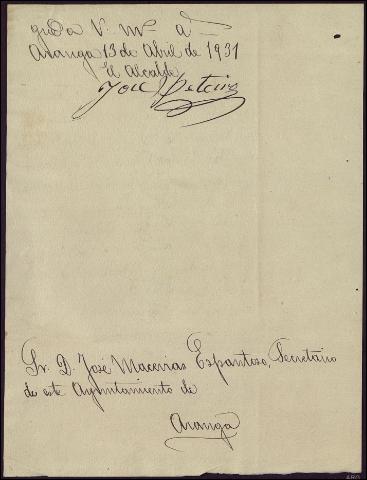 guda V. m.s a.s
Aranga 13 de Abril de 1931
El Alcalde
José Peteiro
Sr. D. José Maceiras Espantoso, Secretario
de este Ayuntamiento de
Aranga